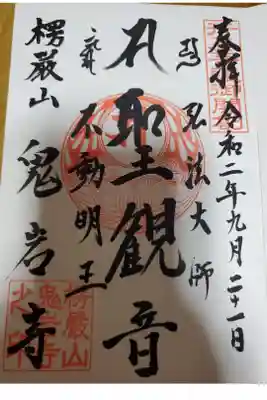 奉拝 令和二年九月二十一日
弘法大師
聖観音
不動明王
楞厳山 鬼岩寺
楞嚴山
鬼岩寺
之印